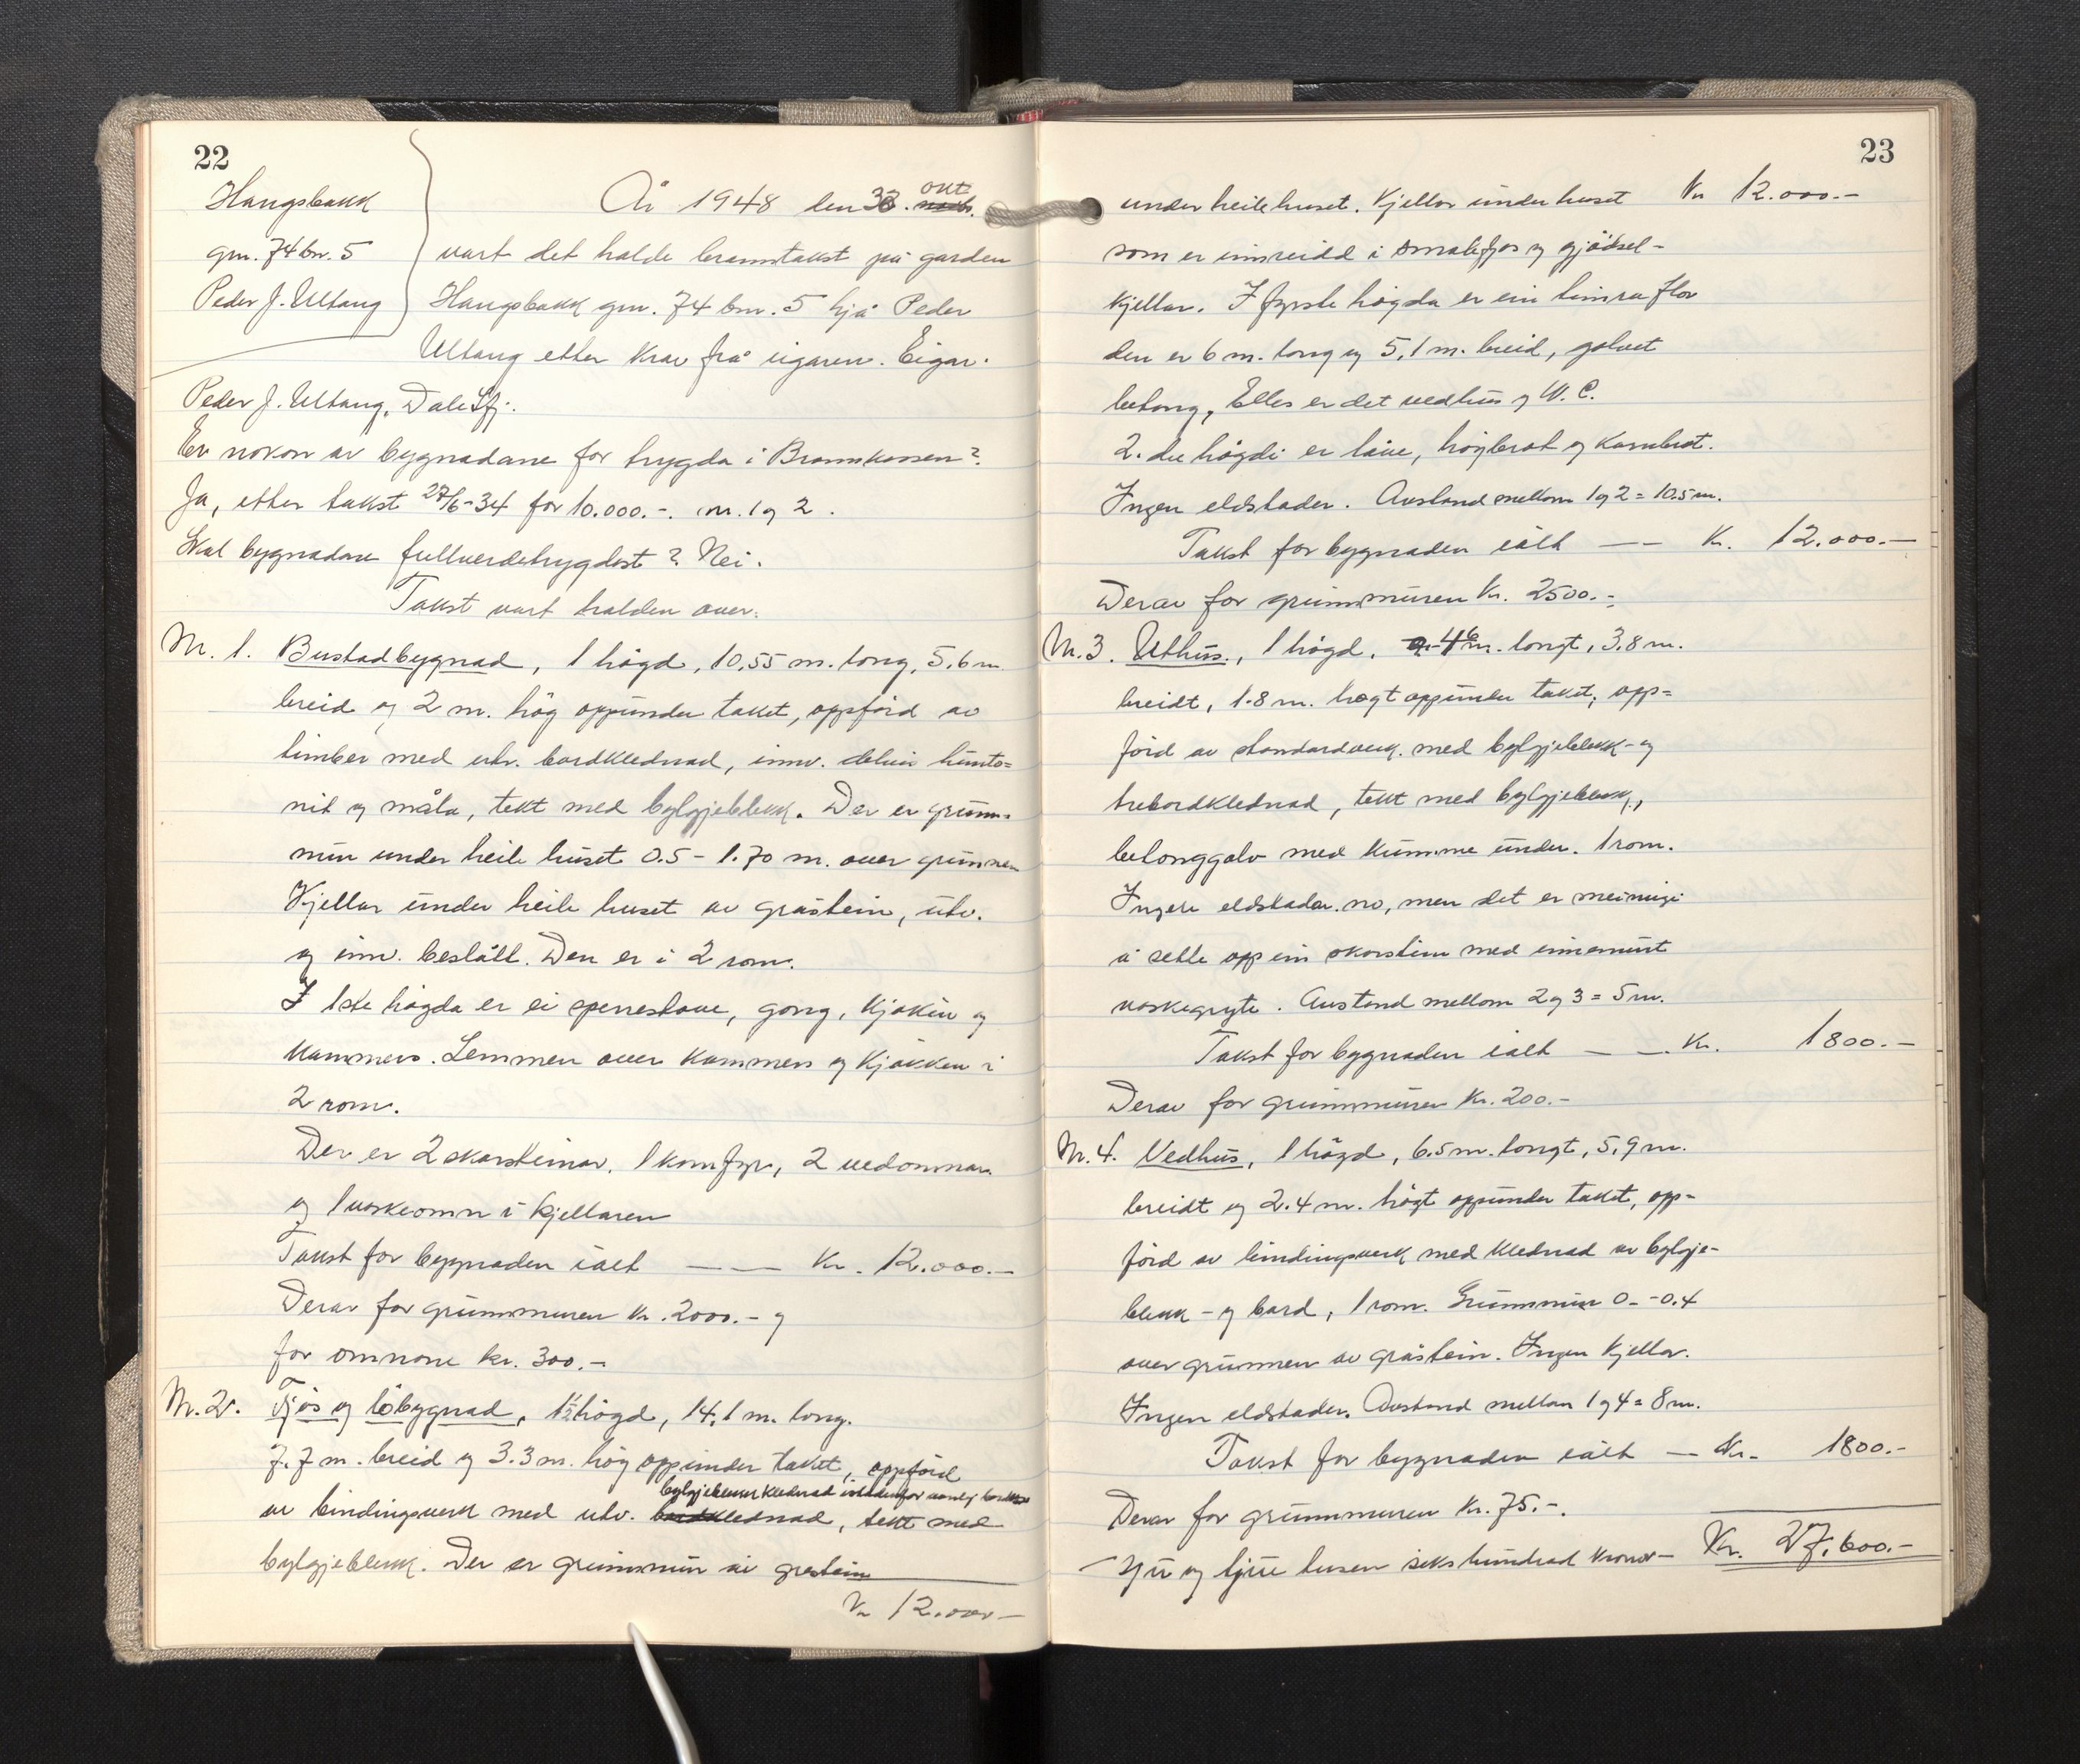 22
Haugsbakk
gnr. 74 bnr. 5
Peder J. Ullaug
År 1948 den 30. okt.
vart det halde branntakst på garden
Haugsbakk gnr. 74 bnr. 5 hjå Peder
Ullaug etter krav frå eigaren. Eigar:
Peder J. Ullaug, Dale Sfj.
Er nokon av bygnadane før trygda i Brannkassen?
Ja, etter takst 27/6-34 for 10.000.-. nr. 1 og 2.
Skal bygnadane fullverdetrygdast? Nei.
Takst vart halden over:
Nr. 1. Bustadbygnad, 1 högd, 10,55 m. long, 5,6 m.
breid og 2 m. hög oppunder taket, oppförd av
timber med utv. bordklednad, innv. delvis hunto-
nit og måla, tekt med bylgjeblekk. Der er grunn-
mur under heile huset 0.5 - 1.70 m. over grunnen
Kjellar under heile huset av gråstein, utv.
og innv. beslått. Den er i 2 rom.
I 1ste högda er ei sperrestove, gong, kjöken og
kammers. Lemmen over kammers og kjökken i
2 rom.
Der er 2 skorsteinar, 1 komfyr, 2 vedomnar
og 1 vaskeomn i kjellaren
Takst for bygnaden ialt — — Kr. 12.000.-
Derav for grunnmuren kr. 2000.- og
for omnane kr. 300.-
Nr. 2. Fjös og löbygnad, 1½ högd, 14,1 m. long.
7.7 m. breid og 3.3 m. hög oppunder taket, oppförd
bylgjeblekk klednad istadenfor vanleg bordkl.
av bindingsverk med utv. bordklednad, tekt med
bylgjeblekk. Der er grunnmur av gråstein
Kr 12.000-
23
under heile huset. Kjellar under huset Kr 12.000.-
som er innreidd i smalefjos og gjödsel-
kjellar. I fyrste högda er ein timra flor
den er 6 m. long og 5,1 m. breid, golvet
betong, Elles er det vedhus og W.C.
2. dre högdi er låve, höybrot og kornbrot.
Ingen eldstader. Avstand mellom 1 og 2 = 10.5 m.
Takst for bygnaden ialt — — Kr. 12.000.-
Derav for grunnmuren Kr. 2500.-
Nr. 3. Uthus, 1 högd, 4 m. longt, 3,8 m.
breidt, 1.8 m. högt oppunder taket, opp-
förd av standardverk med bylgjeblekk- og
trebordklednad, tekt med bylgjeblekk,
betonggolv med kumme under. 1 rom.
Ingen eldstader no, men det er meiningi
å sette opp ein skorstein med innemurt
vaskegryte. Avstand mellom 2 og 3 = 5 m.
Takst for bygnaden ialt — — Kr. 1800.-
Derav for grunnmuren Kr. 200.-
Nr. 4. Vedhus, 1 högd, 6.5 m. longt, 5,9 m.
breidt og 2.4 m. högt oppunder taket, opp-
förd av bindingsverk med klednad av bylgje-
blekk- og bord, 1 rom. Grunnmur 0.-0.4
over grunnen av gråstein. Ingen kjellar.
Ingen eldstader. Avstand mellom 1 og 4 = 8 m.
Takst for bygnaden ialt — Kr. 1800.-
Derav for grunnmuren Kr. 75.-
Sju og tjue tusen sekshundrad kronor- Kr. 27.600.-